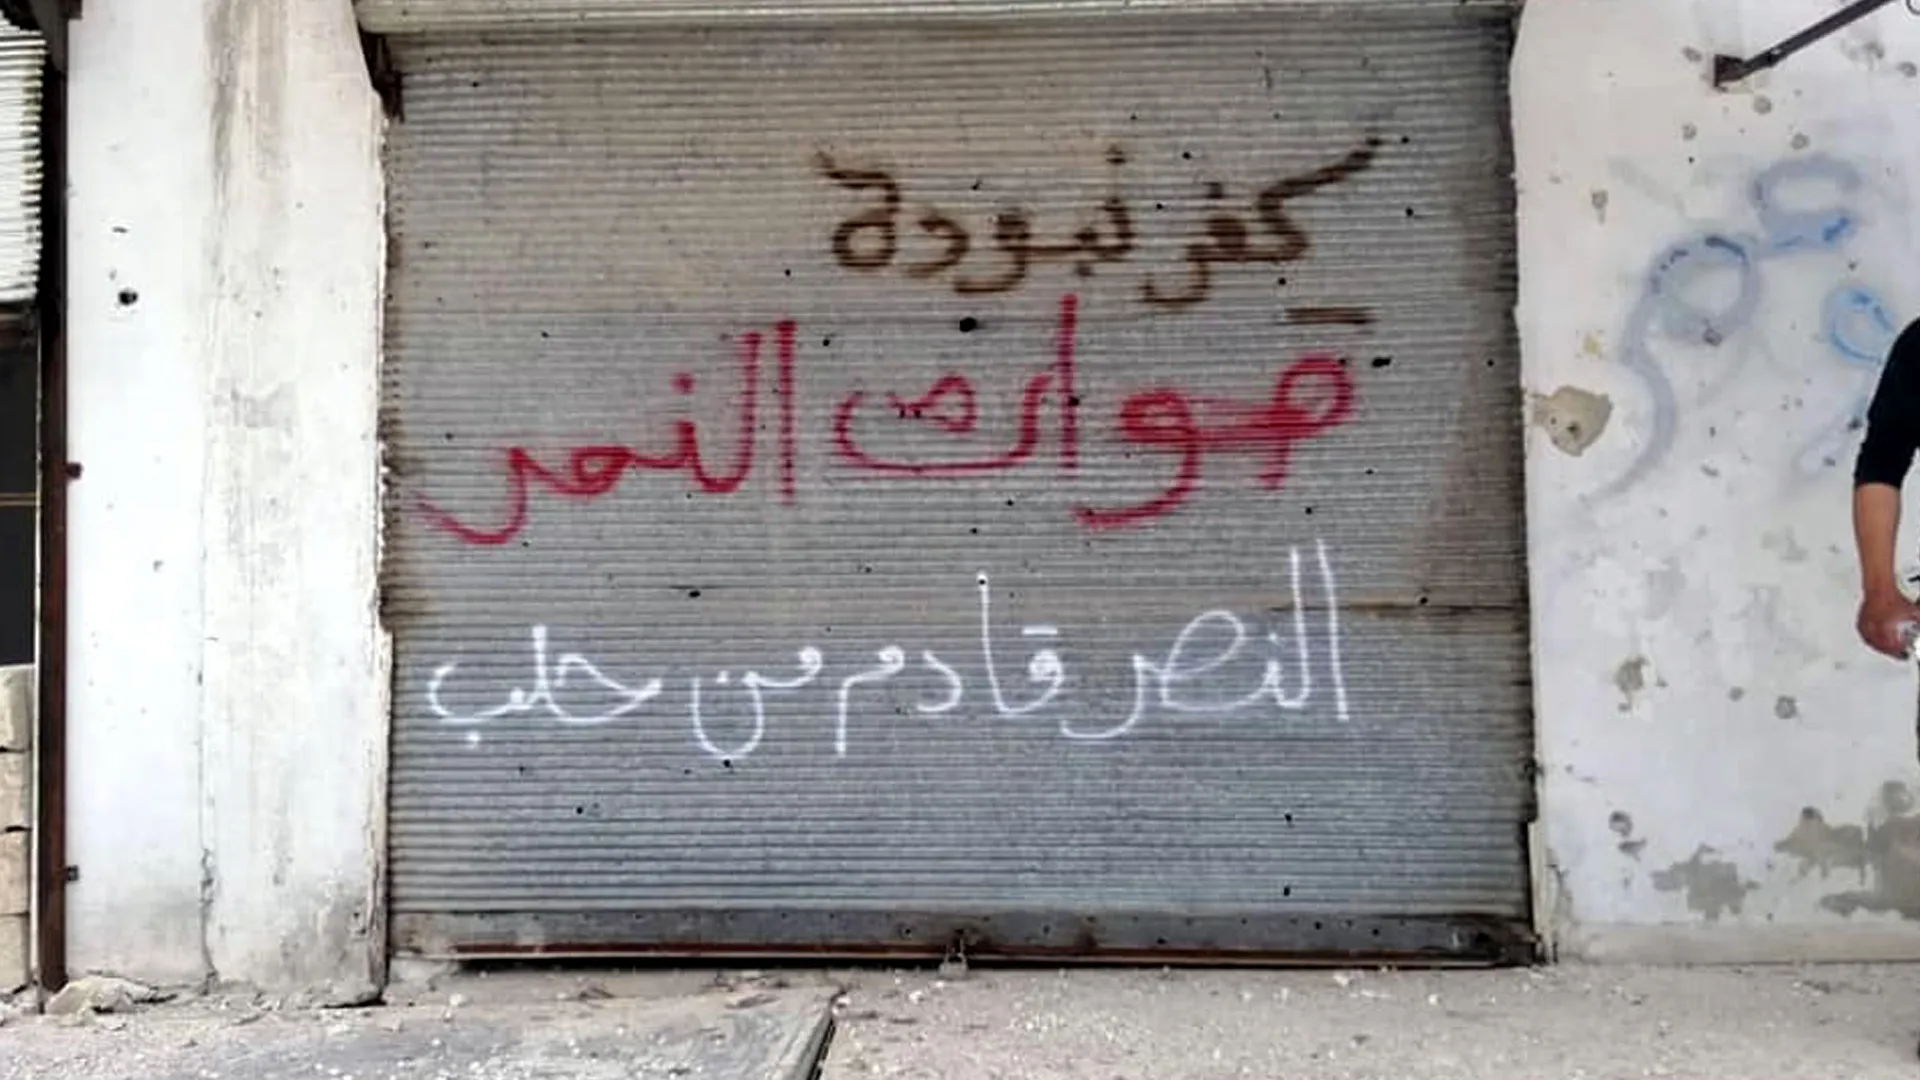 كفر نبودة
النمر
النصر قادم من حلب